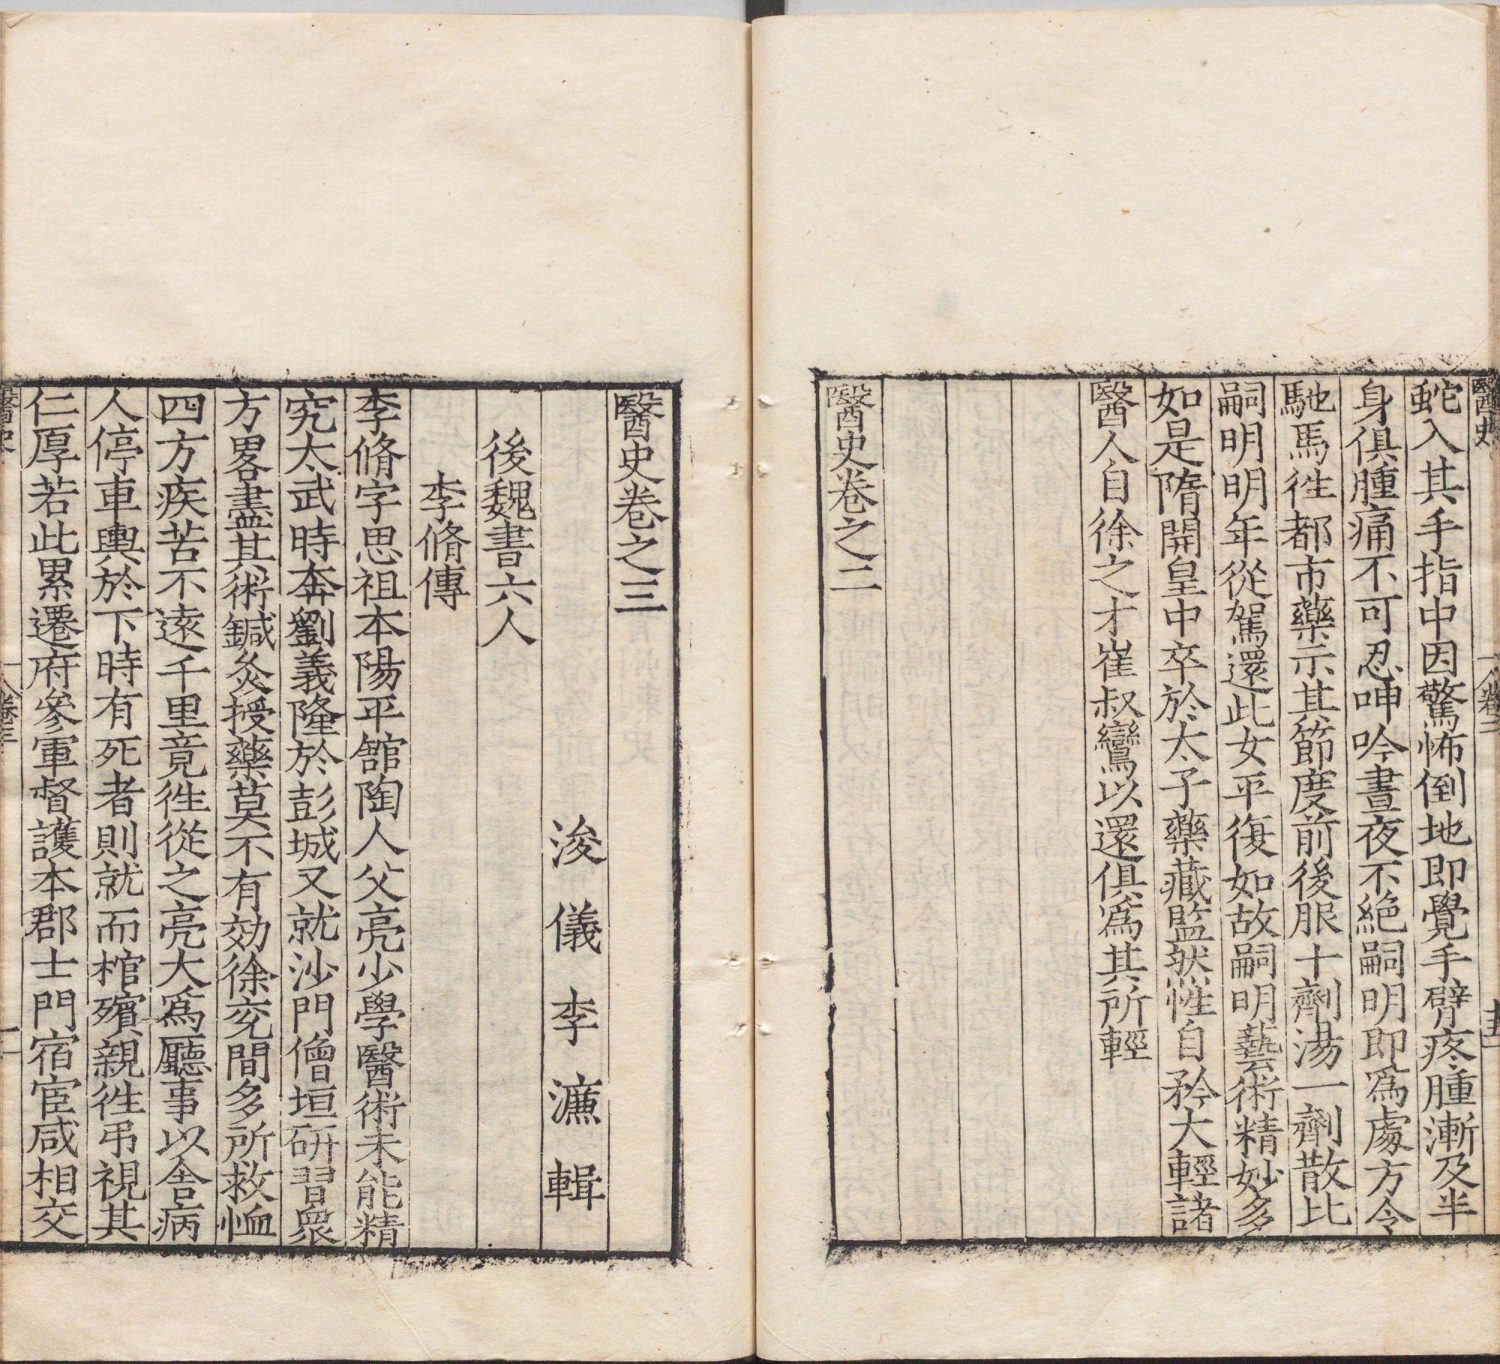 醫史
卷二
蛇入其手指中因驚怖倒地即覺手臂疼腫漸及半
身俱腫痛不可忍呻吟晝夜不絕嗣明即爲處方令
馳馬徃都市藥示其節度前後服十劑湯一劑散比
嗣明明年從駕還此女平復如故嗣明藝術精妙多
如是隋開皇中卒於太子藥藏監然性自矜大輕諸
醫人自徐之才崔叔鸞以還俱爲其所輕
醫史卷之二
醫史卷之三
浚儀李濂輯
後魏書六人
李脩傳
李脩字思祖本陽平舘陶人父亮少學醫術未能精
究太武時奔劉義隆於彭城又就沙門僧垣研習衆
方畧盡其術鍼灸授藥莫不有効徐兖間多所救恤
四方疾苦不遠千里竟徃從之亮大爲廳事以舍病
人停車輿於下時有死者則就而棺殯親徃弔視其
仁厚若此累遷府參軍督護本郡士門宿宦咸相交
醫史
卷三